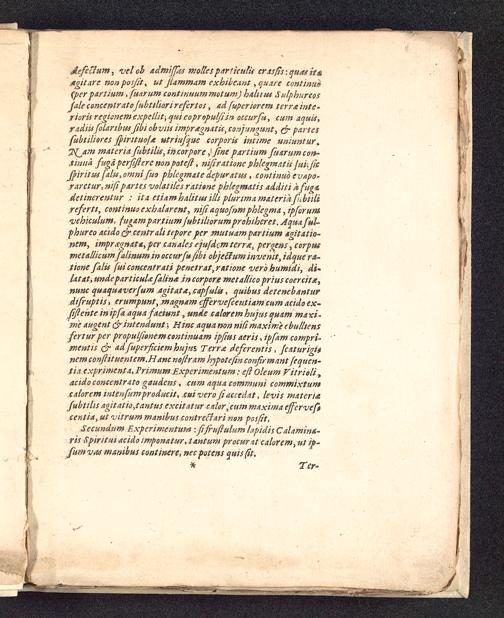 defectum, vel ob admissas molles particulis crassis: quas ita
agitare non possit, ut flammam exhibeant, quare continuò
(per partium, suarum continuum motum) halitus Sulphureos
sale concentrato subtiliori refertos, ad superiorem terræ inte-
rioris regionem expellit, qui eo propulsi in occursu, cum aquis,
radiis solaribus sibi obviis imprægnatis, conjungunt, & partes
subtiliores spirituosæ utriusque corporis intime uniuntur.
Nam materia subtilis, in corpore, sine partium suarum con-
tinuâ fugâ persistere non potest, nisi ratione phlegmatis sui: sic
spiritus salu, omni suo phlegmate depuratus, continuò evapo-
raretur, nisi partes volatiles ratione phlegmatis additi à fuga
detinerentur: ita etiam halitus illi plurima materia subtili
referti, continuo exhalarent, nisi aquosum phlegma, ipsorum
vehiculum, fugam partium subtiliorum prohiberet. Aqua sul-
phureo acido & centrali tepore per mutuam partium agitatio-
nem, imprægnata, per canales ejusdem terræ, pergens, corpus
metallicum salinum in occursu sibi objectum invenit, idque ra-
tione salis sui concentrati penetrat, ratione verò humidi, di-
latat, unde particulæ salinæ in corpore metallico prius coercitæ,
nunc quaquaversum agitatæ, capsulis, quibus detenebantur
disruptis, erumpunt, magnam effervescentiam cum acido ex-
sistente in ipsa aqua faciunt, unde calorem hujus quam maxi-
mè augent & intendunt; Hinc aqua non nisi maximè ebulliens
fertur per propulsionem continuam ipsius aeris, ipsam compri-
mentis & ad superficiem hujus Terræ deferentis, scaturigi-
nem constituentem. Hanc nostram hypotesin confirmant sequen-
tia exprimenta. Primum Experimentum: est Oleum Vitrioli,
acido concentrato gaudens, cum aqua communi commixtum
calorem intensum producit, cui vero si accedat, levis materiæ
subtilis agitatio, tantus excitatur calor, cum maxima efferves-
centia, ut vitrum manibus contrectari non possit.
Secundum Experimentum: si frustulum lapidis Calamina-
ris Spiritus acido imponatur, tantum procurat calorem, ut ip-
sum vas manibus continere, nec potens quis sit.
* Ter-